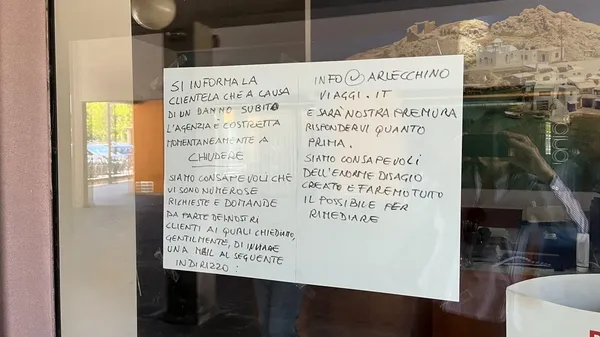 SI INFORMA LA
CLIENTELA CHE A CAUSA
DI UN DANNO SUBITO
L'AGENZIA È COSTRETTA
MOMENTANEAMENTE A
CHIUDERE
SIAMO CONSAPEVOLI CHE
VI SONO NUMEROSE
RICHIESTE E DOMANDE
DA PARTE DEI NOSTRI
CLIENTI AI QUALI CHIEDIAMO,
GENTILMENTE, DI INVIARE
UNA MAIL AL SEGUENTE
INDIRIZZO:
INFO@ARLECCHINO
VIAGGI.IT
E SARÀ NOSTRA PREMURA
RISPONDERVI QUANTO
PRIMA.
SIAMO CONSAPEVOLI
DELL'ENORME DISAGIO
CREATO E FAREMO TUTTO
IL POSSIBILE PER
RIMEDIARE